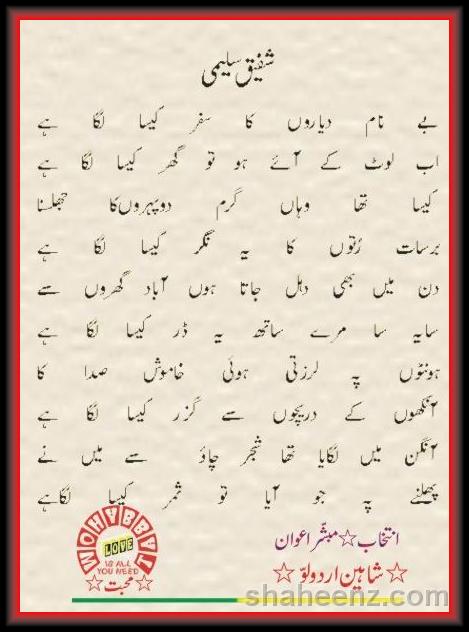 شفیق سلیمی
بے نام دیاروں کا سفر کیسا لگا ہے
اب لوٹ کے آئے ہو تو گھر کیسا لگا ہے
کیسا تھا وہاں گرم دوپہروں کا جھلسنا
برسات رُتوں کا یہ نگر کیسا لگا ہے
دن میں بھی دہل جاتا ہوں آباد گھروں سے
سایہ سا مرے ساتھ یہ ڈر کیسا لگا ہے
ہونٹوں پہ لرزتی ہوئی خاموش صدا کا
آنکھوں کے دریچوں سے گزر کیسا لگا ہے
آنگن میں لگایا تھا شجر چاؤ سے میں نے
پھلنے پہ جو آیا تو ثمر کیسا لگا ہے
انتخاب ☆ مبشّر اعوان
☆ شاہین اردو لوّ ☆
WOHYBBYL
LOVE
IS ALL
YOU NEED
☆ محبت ☆
shaheenz.com